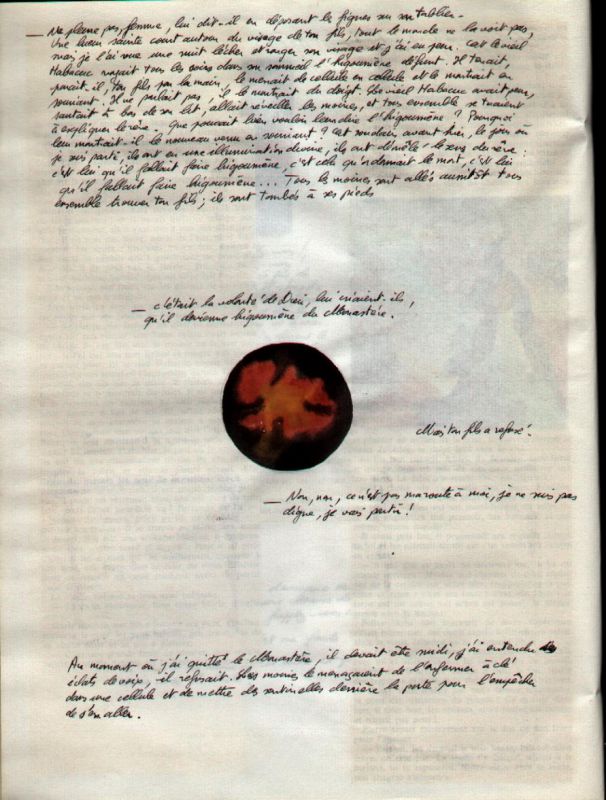 — Ne pleure pas, femme, lui dit-il en déposant les figues sur son tablier.
Une lueur sainte court autour du visage de ton fils, tout le monde ne la voit pas,
mais je l'ai vue une nuit lécher et ronger son visage et j'ai eu peur. Et le vieil
Habacuc voyait tous les soirs dans son sommeil l'higoumène défunt. Il tenait,
paraît-il, ton fils par la main, le menait de cellule en cellule et le montrait en
souriant. Il ne parlait pas, il le montrait du doigt. Le vieil Habacuc avait peur,
sautait à bas de son lit, allait réveiller les moines, et tous ensemble se tuaient
à expliquer le rêve. Que pouvait bien vouloir leur dire l'higoumène ? Pourquoi
leur montrait-il le nouveau venu en souriant ? Et soudain, avant-hier, le jour où
je suis parti, ils ont eu une illumination divine, ils ont démêlé le sens du rêve :
c'est lui qu'il fallait faire higoumène, c'est cela qu'ordonnait le mort, c'est lui
qu'il fallait faire higoumène... Tous les moines sont allés aussitôt tous
ensemble trouver ton fils ; ils sont tombés à ses pieds
— c'était la volonté de Dieu, lui criaient-ils,
qu'il devienne higoumène du Monastère.
Mais ton fils a refusé.
— Non, non, ce n'est pas ma route à moi, je ne suis pas
digne, je vais partir !
Au moment où j'ai quitté le Monastère, il devait être midi, j'ai entendu des
éclats de voix, il refusait. Les moines le menaçaient de l'enfermer à clé
dans une cellule et de mettre des sentinelles derrière la porte pour l'empêcher
de s'en aller.